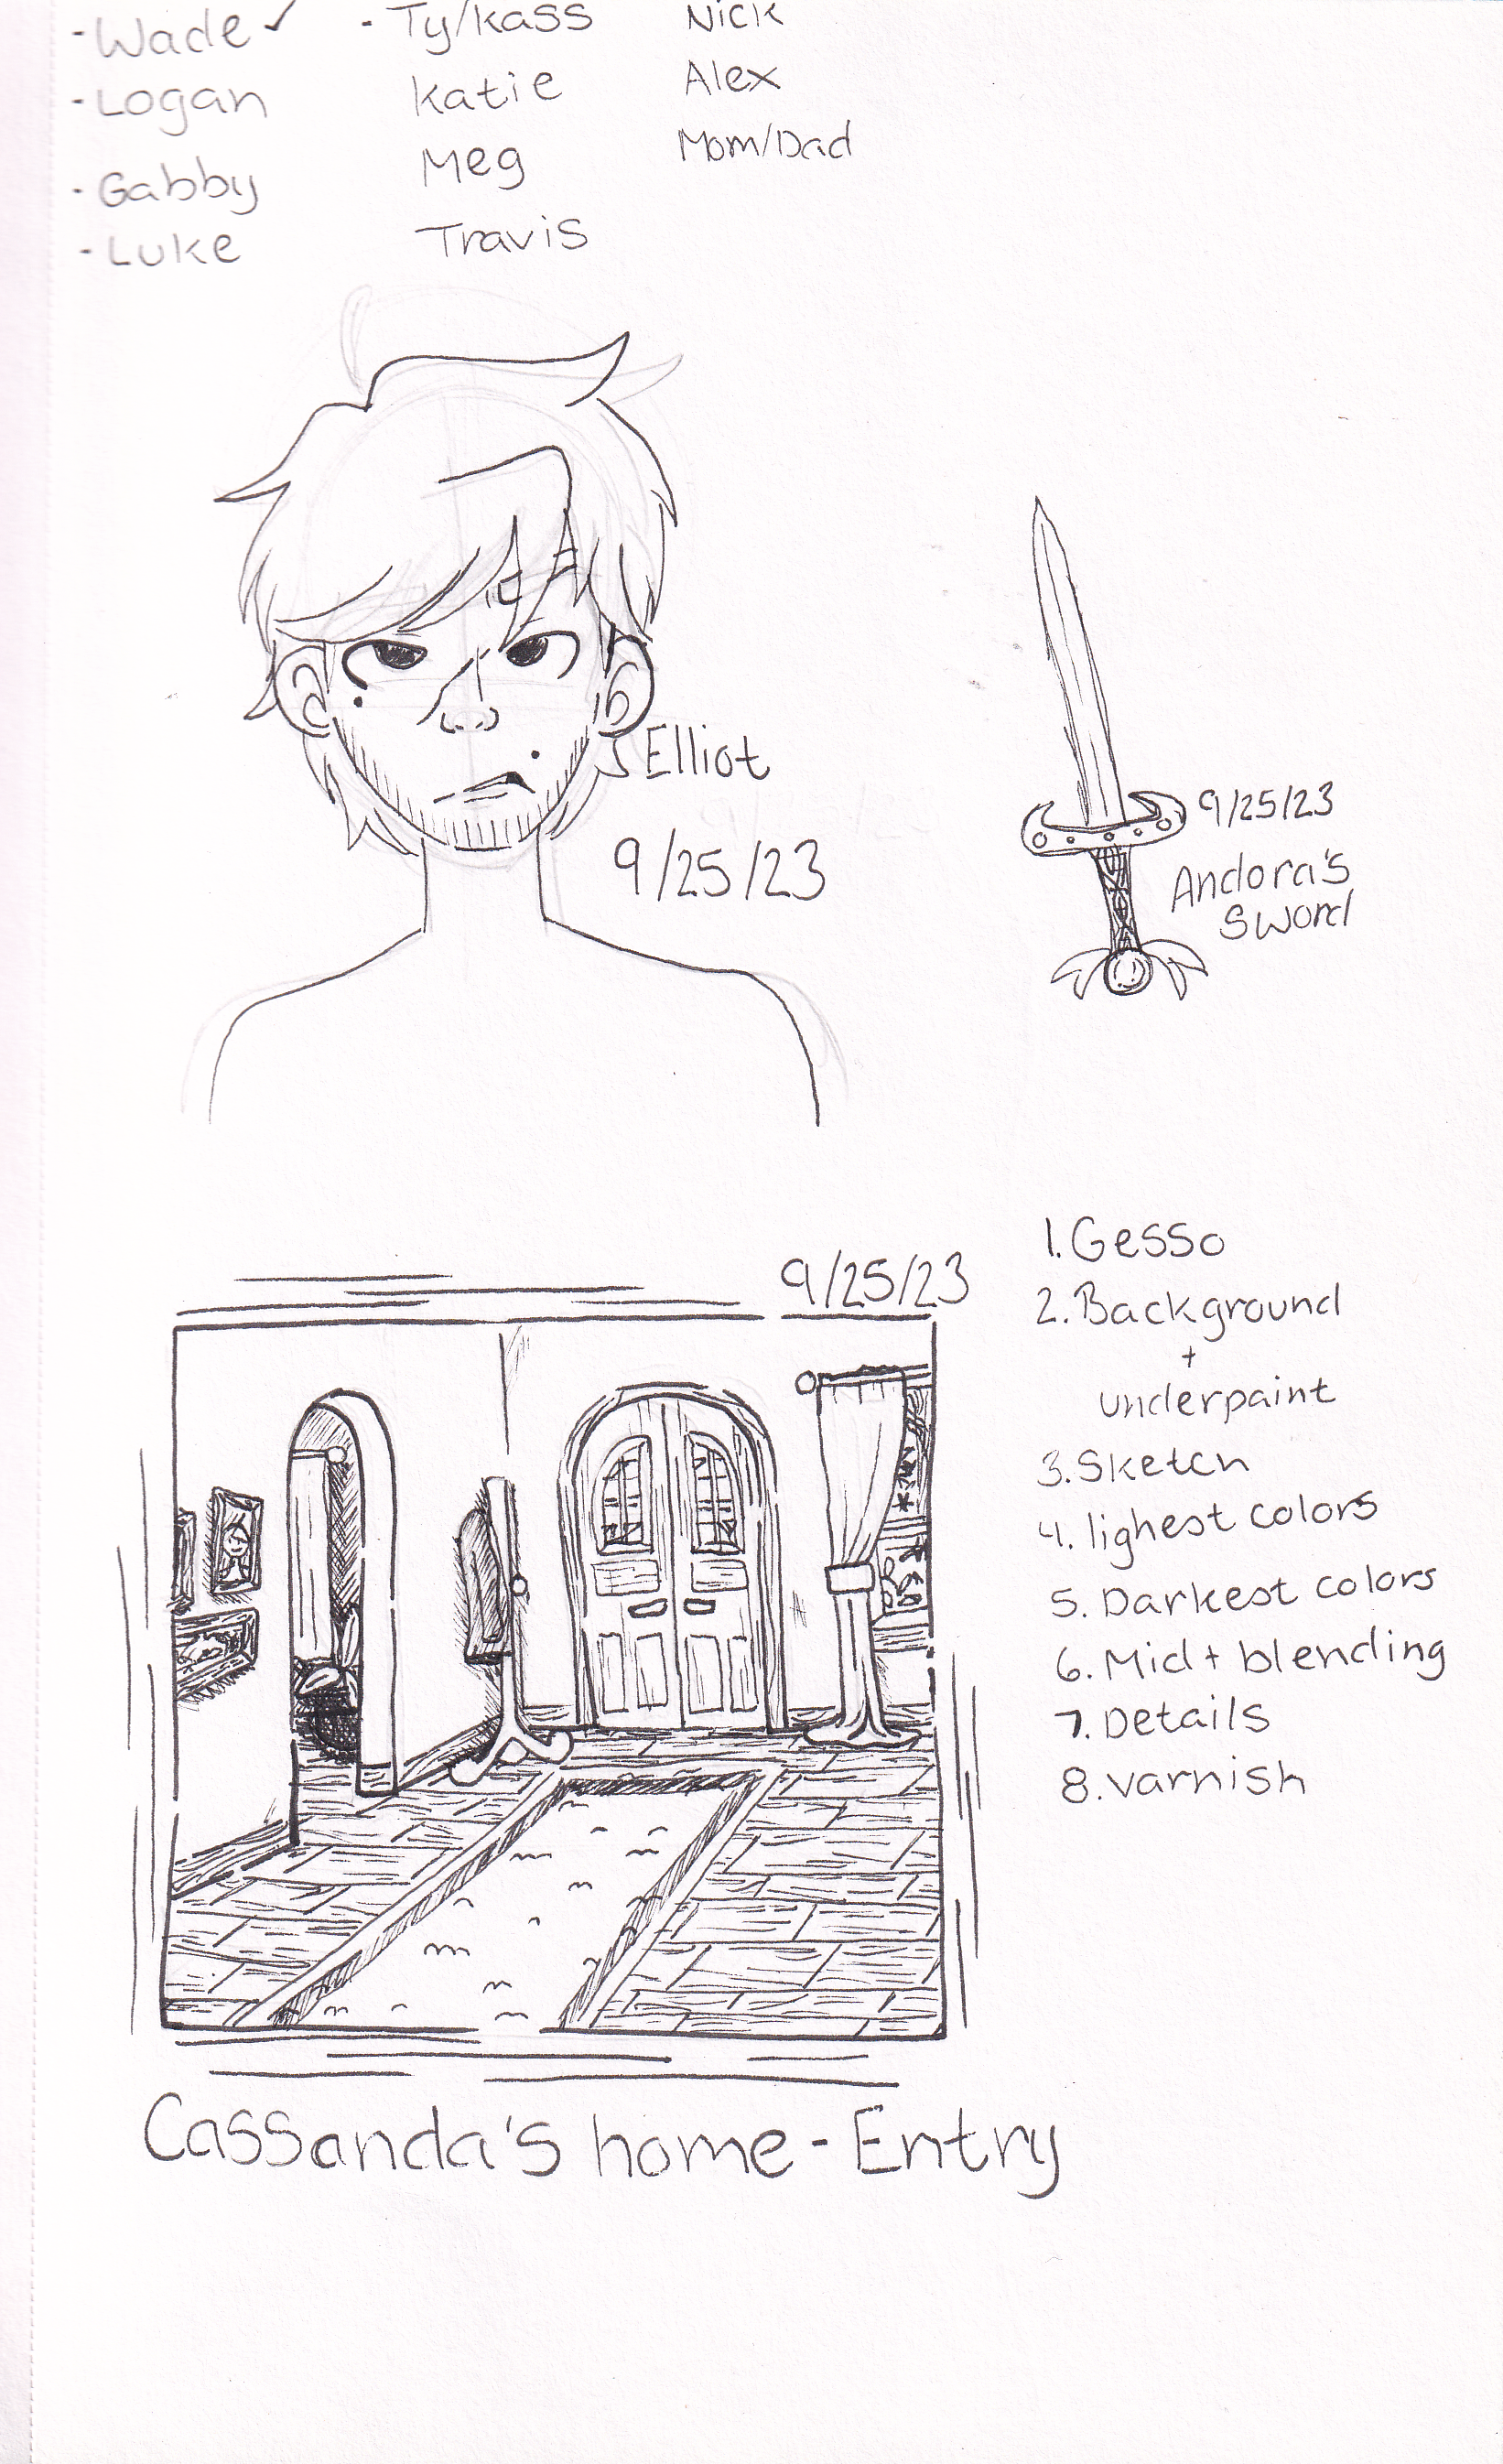 - Wade ✓
- Logan
- Gabby
- Luke
- Ty/Kass
Katie
Meg
Travis
Nick
Alex
Mom/Dad
Elliot
9/25/23
9/25/23
Andora's
Sword
9/25/23
1. Gesso
2. Background
+
underpaint
3. Sketch
4. lighest colors
5. Darkest colors
6. Mid + blending
7. Details
8. varnish
Cassanda's home - Entry